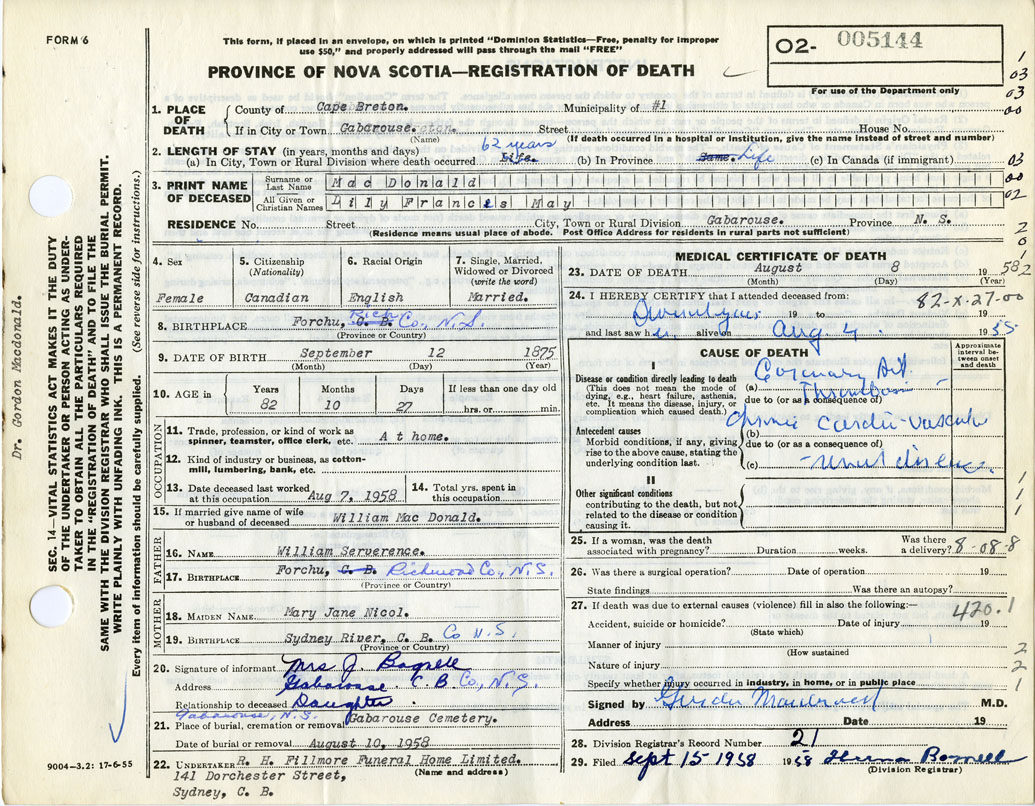 FORM 6
This form, if placed in an envelope, on which is printed "Dominion Statistics—Free, penalty for improper
use $50," and properly addressed will pass through the mail "FREE"
O2- 005144
For use of the Department only
PROVINCE OF NOVA SCOTIA—REGISTRATION OF DEATH
1. PLACE OF DEATH County of Cape Breton. Municipality of #1
If in City or Town Gabarouse. Street House No.
(Name) (If death occurred in a hospital or institution, give the name instead of street and number)
2. LENGTH OF STAY (in years, months and days) 62 years
(a) In City, Town or Rural Division where death occurred Life. (b) In Province Same. Life (c) In Canada (if immigrant)
3. PRINT NAME OF DECEASED Surname or Last Name Mac Donald
All Given or Christian Names Lily Frances May
RESIDENCE No. Street City, Town or Rural Division Gabarouse. Province N. S.
(Residence means usual place of abode. Post Office Address for residents in rural parts not sufficient)
4. Sex 5. Citizenship (Nationality) 6. Racial Origin 7. Single, Married, Widowed or Divorced (write the word)
Female Canadian English Married.
8. BIRTHPLACE Forchu, C. B. Rich Co, N.S.
(Province or Country)
9. DATE OF BIRTH September 12 1875
(Month) (Day) (Year)
10. AGE in Years Months Days If less than one day old
82 10 27 hrs. or min.
OCCUPATION
11. Trade, profession, or kind of work as
spinner, teamster, office clerk, etc. At home.
12. Kind of industry or business, as cotton-
mill, lumbering, bank, etc.
13. Date deceased last worked
at this occupation Aug 7, 1958
14. Total yrs. spent in
this occupation
15. If married give name of wife
or husband of deceased William Mac Donald.
FATHER
16. NAME William Serverence.
17. BIRTHPLACE Forchu, C. B. Richmond Co, N.S.
(Province or Country)
MOTHER
18. MAIDEN NAME Mary Jane Nicol.
19. BIRTHPLACE Sydney River, C. B. Co N.S.
(Province or Country)
20. Signature of informant Mrs J. Bagnell
Address Gabarouse C.B Co, N.S.
Relationship to deceased Daughter
Gabarouse, N.S.
21. Place of burial, cremation or removal Gabarouse Cemetery.
Date of burial or removal August 10, 1958
22. UNDERTAKER R. H. Fillmore Funeral Home Limited.
(Name and address)
141 Dorchester Street,
Sydney, C. B.
9004—3.2: 17-6-55
MEDICAL CERTIFICATE OF DEATH
23. DATE OF DEATH August 8 1958
(Month) (Day) (Year)
24. I HEREBY CERTIFY that I attended deceased from: 82-X-27-00
19 to 19
and last saw her alive on Aug 4. 19
CAUSE OF DEATH
Approximate interval between onset and death
I
Disease or condition directly leading to death
(This does not mean the mode of
dying, e.g., heart failure, asthenia,
etc. It means the disease, injury, or
complication which caused death.)
(a) Coronary Art
Thrombosis
due to (or as a consequence of)
Antecedent causes
Morbid conditions, if any, giving
rise to the above cause, stating the
underlying condition last.
(b) Chronic Cardio-vascular
due to (or as a consequence of)
(c) -renal disease.
II
Other significant conditions
contributing to the death, but not
related to the disease or condition
causing it.
25. If a woman, was the death
associated with pregnancy? Duration weeks. Was there
a delivery? 8-08-8
26. Was there a surgical operation? Date of operation 19
State findings Was there an autopsy?
27. If death was due to external causes (violence) fill in also the following:—
420.1
Accident, suicide or homicide? Date of injury 19
(State which)
Manner of injury
(How sustained
Nature of injury
Specify whether injury occurred in industry, in home, or in public place
Signed by M.D.
Address Date 19
28. Division Registrar's Record Number 21
29. Filed Sept 15 1958 1958
(Division Registrar)
Dr. Gordon Macdonald.
SEC. 14—VITAL STATISTICS ACT MAKES IT THE DUTY
OF THE UNDERTAKER OR PERSON ACTING AS UNDER-
TAKER TO OBTAIN ALL THE PARTICULARS REQUIRED
IN THE "REGISTRATION OF DEATH" AND TO FILE THE
SAME WITH THE DIVISION REGISTRAR WHO SHALL ISSUE THE BURIAL PERMIT.
WRITE PLAINLY WITH UNFADING INK. THIS IS A PERMANENT RECORD.
Every item of information should be carefully supplied. (See reverse side for instructions.)